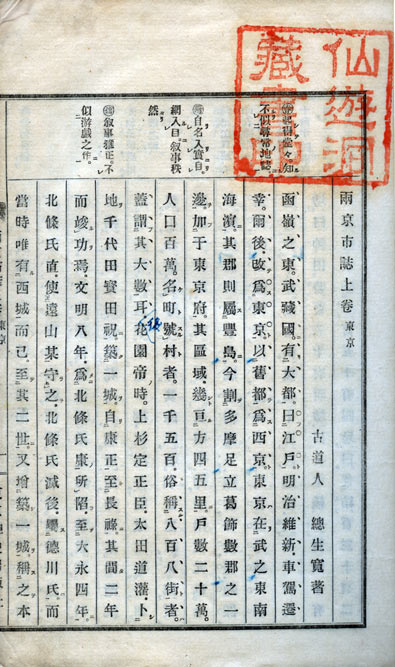 仙遊洞
藏書印
兩京市誌上卷 東京
古道人 總生寬著
函嶺之東。武藏國有大都。曰江戶明治維新。車駕遷
幸。爾後改爲東京。以舊都爲西京。東京在武之東南
海濱。其郡則屬豐島。今割多摩足立葛飾數郡之一
邊。加于東京府。其區域。幾亘方四五里。戶數二十萬。
人口百萬。名町號村者。一千五百。俗稱八百八街者。
蓋謂其大數耳。後花園帝時。上杉定正臣。太田道灌。卜
地千代田寶田祝。築一城。自康正至長祿。其間二年
而竣功焉。文明八年。爲北條氏康所陷。至大永四年。
北條氏直。使遠山某守之。北條氏滅後。歸德川氏。而
當時唯有西城而已。至其二世。又增築一城。稱之本
自名入實自
綱入目敘事秩
然
敘事雅正。不
似游戲之作。